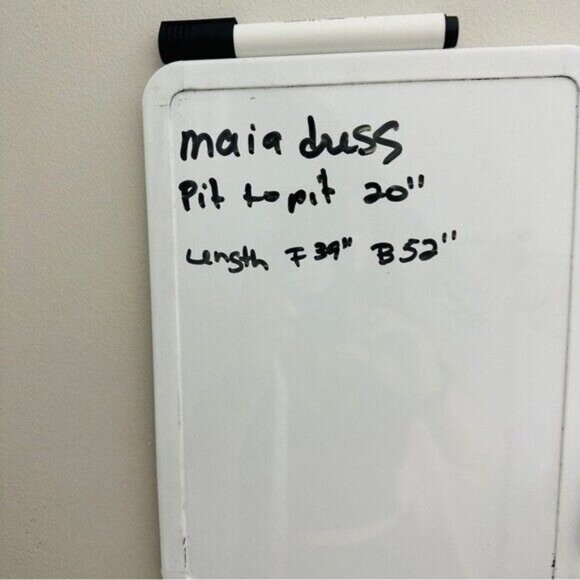 maia dress
Pit to pit 20"
Length F 39" B 52"